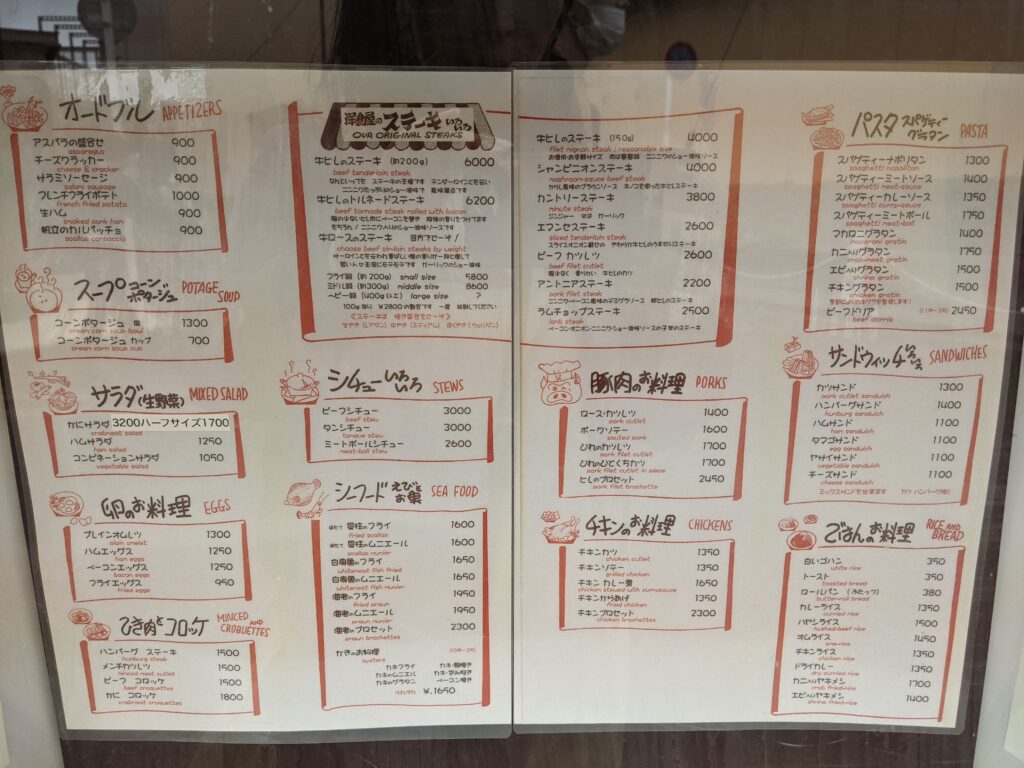 オードブル APPETIZERS
アスパラの盛合せ 900
asparagus
チーズクラッカー 900
cheese & cracker
サラミソーセージ 900
salami sausage
フレンチフライポテト 1000
french fried potato
生ハム 900
smoked pork ham
帆立のカルパッチョ 900
scallop carpaccio
スープ コーンポタージュ POTAGE SOUP
コーンポタージュ 皿 1300
cream corn soup bowl
コーンポタージュ カップ 700
cream corn soup cup
サラダ(生野菜) MIXED SALAD
かにサラダ 3200ハーフサイズ1700
crabmeat salad
ハムサラダ 1250
ham salad
コンビネーションサラダ 1050
vegetable salad
卵のお料理 EGGS
プレインオムレツ 1300
plain omelet
ハムエッグス 1250
ham eggs
ベーコンエッグス 1250
bacon eggs
フライエッグス 950
fried eggs
ひき肉とコロッケ MINCED AND CROQUETTES
ハンバーグ ステーキ 1500
humburg steak
メンチカツレツ 1500
minced meat cutlet
ビーフ コロッケ 1500
beef croquettes
かに コロッケ 1800
crabmeat croquettes
洋食屋のステーキいろいろ
OUR ORIGINAL STEAKS
牛ヒレのステーキ (約200g) 6000
beef tenderloin steak
なんといっても ステーキの王様です テンダーロインとも云い
牛ヒレのトルネードステーキ 6200
beef tornade steak rolled with bacon
牛ロースのステーキ 目方でどーぞ!
choose beef sir-loin steaks by weight
フライ級 (約200g) small size 5800
ミドル級 (約300g) middle size 8600
ヘビー級 (400g以上) large size ?
シチューいろいろ STEWS
ビーフシチュー 3000
beef stew
タンシチュー 3000
tongue stew
ミートボールシチュー 2600
meat-ball stew
シーフード えびとお魚 SEA FOOD
ほたて 貝柱のフライ 1600
fried scallop
ほたて 貝柱のムニエール 1600
scallop munier
白身魚のフライ 1650
whitemeat fish fried
白身魚のムニエール 1650
whitemeat fish munier
海老のフライ 1950
fried prawn
海老のムニエール 1950
prawn munier
海老のブロセット 2300
prawn brochettes
かきのお料理 (10月〜3月)
oysters
カキフライ
カキのムニエル
カキのグラタン ベーコン巻き
¥.1650
牛ヒレのステーキ (150g) 4000
filet mignon steak : reasonable size
シャンピニオンステーキ 4000
mashroom-sauce beef steak
からし風味のブラウンソース キノコを使った牛ヒレステーキ
カントリーステーキ 3800
minute steak
ジンジャー ガーリック
エマンセステーキ 2600
sliced tenderloin steak
ビーフ カツレツ 2600
beef filet cutlet
アントニアステーキ 2200
pork filet steak
ラムチョップステーキ 2500
lamb steak
豚肉のお料理 PORKS
ロース・カツレツ 1400
pork cutlet
ポークソテー 1400
sauted pork
ひれのカツレツ 1700
pork filet cutlet
ひれのひとくちカツ 1700
pork filet cutlet in piece
ヒレのブロセット 2450
pork filet brochette
チキンのお料理 CHICKENS
チキンカツ 1350
chicken cutlet
チキンソテー 1350
grilled chicken
チキン カレー煮 1650
chicken stewed with currysauce
チキンからあげ 1350
fried chicken
チキンブロセット 2300
chicken brochettes
パスタ スパゲティー グラタン PASTA
スパゲティーナポリタン 1300
spaghetti napolitan
スパゲティーミートソース 1400
spaghetti meat-sauce
スパゲティーカレーソース 1350
spaghetti curry-sauce
スパゲティーミートボール 1750
spaghetti meat-ball
マカロニグラタン 1400
macaroni gratin
カニ入りグラタン 1750
crab-meat gratin
エビ入りグラタン 1500
shrimp gratin
チキングラタン 1500
chicken gratin
ビーフドリア (11月〜3月) 2450
beef dorria
サンドウィッチいろいろ SANDWICHES
カツサンド 1300
pork cutlet sandwich
ハンバーグサンド 1400
humburg sandwich
ハムサンド 1100
ham sandwich
タマゴサンド 1100
egg sandwich
ヤサイサンド 1100
vegetable sandwich
チーズサンド 1100
cheese sandwich
ミックスサンドも出来ます カツ ハンバーグ除く
ごはんのお料理 RICE AND BREAD
白いゴハン 350
white rice
トースト 350
toasted bread
ロールパン (ふたつ) 380
butter-roll bread
カレーライス 1350
curried rice
ハヤシライス 1500
hashed-beef rice
オムライス 1450
ome-rice
チキンライス 1350
chicken rice
ドライカレー 1350
dry curried rice
カニ入りヤキメシ 1700
crab fried-rice
エビ入りヤキメシ 1400
shrimp fried-rice